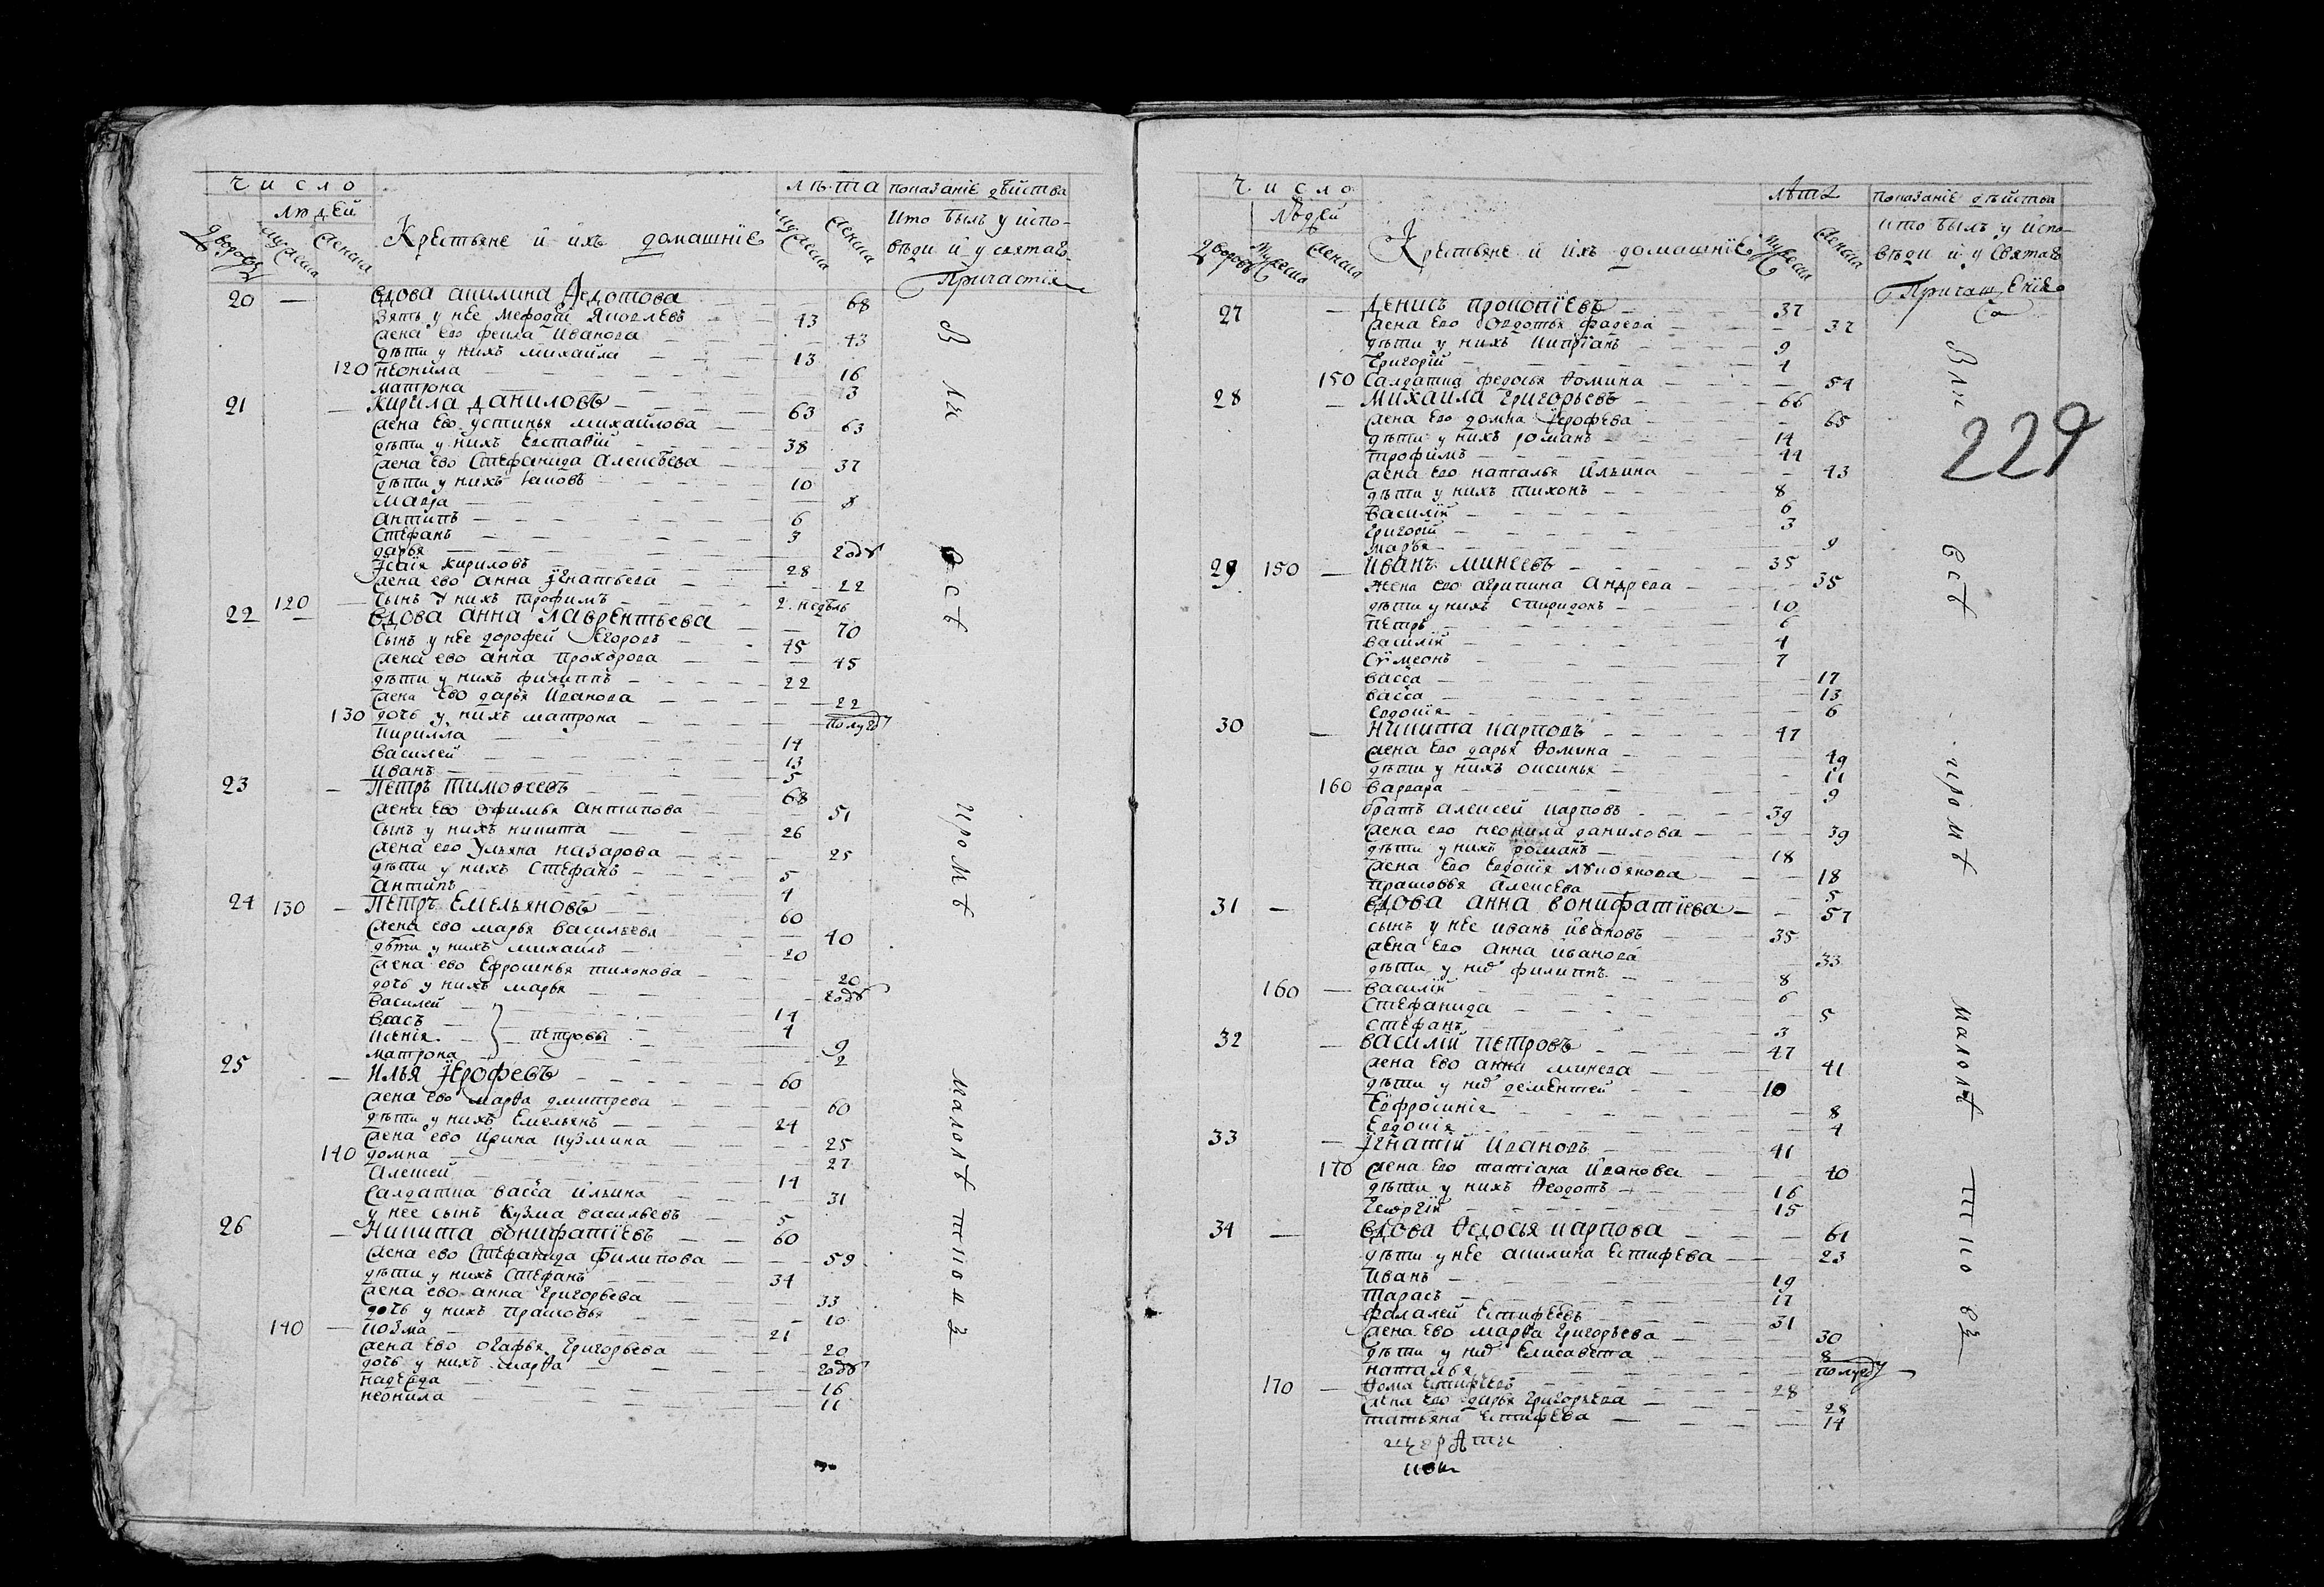 Число
людей
дворовъ
мужеска
женска
Крестьяне и ихъ домашнїе
лѣта
мужеска
женска
показанїе дѣйства
кто былъ у испо-
вѣди и у святаго
Причастїя
20 — вдова акилина Ѳедотова — 68
Зять у нее мефодїй Яковлевъ — 43
жена ево фекла иванова — 43
дѣти у нихъ михайла — 13
120 неонила — 16
матрона — 3
21 — кирила даниловъ — 63
жена ево устинья михайлова — 63
дѣти у нихъ Евстафїй — 38
жена ево Стефанида алексѣева — 37
дѣти у нихъ иаковъ — 10
мавра — 8
антипъ — 6
Стефанъ — 3
дарья — годъ
Исаїя кириловъ — 28
жена ево анна Игнатьева — 22
120 — Сынъ у нихъ трофимъ — 2 недѣль
22 — вдова анна лаврентьева — 70
Сынъ у нее дорофей Егоровъ — 45
жена ево анна прохорова — 45
дѣти у нихъ филиппъ — 22
жена ево дарья иванова — 22
130 дочь у нихъ матрона — полугоду
кирилла — 14
василей — 13
иванъ — 5
23 — петръ тимоѳеевъ — 68
жена ево офимья антипова — 51
сынъ у нихъ никита — 26
жена ево ульяна назарова — 25
дѣти у нихъ Стефанъ — 5
антипъ — 4
24 130 — петръ емельяновъ — 60
жена ево марья васильева — 40
дѣти у нихъ михайлъ — 20
жена ево Ефросинья тихонова — 20
дочь у нихъ марья — годъ
василей — 14
власъ — 4
ксенїя — петровы — 9
матрона — 2
25 — илья Ерофеевъ — 60
жена ево марѳа дмитрева — 60
дѣти у нихъ Емельянъ — 24
жена ево ирина кузмина — 25
140 домна — 27
алексей — 14
салдатка васса ильина — 31
у нее сынъ кузма васильевъ — 5
26 — Никита вонифатїевъ — 60
жена ево Стефанида филипова — 59
дѣти у нихъ Стефанъ — 34
жена ево анна григорьева — 33
дочь у нихъ прасковья — 10
140 — козма — 21
жена ево огафья григорьева — 20
дочь у нихъ марѳа — годъ
надежда — 16
неонила — 11
В ля всѣ кромѣ малолѣтковъ
Число
людей
дворовъ
мужеска
женска
Крестьяне и ихъ домашнїе
лѣта
мужеска
женска
показанїе дѣйства
кто былъ у испо-
вѣди и у Святаго
229
27 — денисъ прокопїевъ — 37
жена ево овдотья фадеева — 37
дѣти у нихъ киприанъ — 9
григорїй — 4
150 Салдатка федосья ѳомина — 54
28 — михайла григорьевъ — 66
жена ево домна Ерофеева — 65
дѣти у нихъ романъ — 14
трофимъ — 44
жена ево наталья ильина — 43
дѣти у нихъ тихонъ — 8
василїй — 6
григорїй — 3
марья — 9
29 150 — иванъ минеевъ — 35
жена ево агрипина андреева — 35
дѣти у нихъ спиридонъ — 10
петръ — 6
василїй — 4
Сѵмеонъ — 7
васса — 17
васса — 13
Евдокїя — 6
30 — никита карповъ — 47
жена ево дарья ѳомина — 49
дѣти у нихъ оксинья — 11
160 варвара — 9
братъ алексей карповъ — 39
жена ево неонила данилова — 39
дѣти у нихъ романъ — 18
жена ево Евдокїя лукоянова — 18
прасковья алексеева — 5
31 — вдова анна вонифатїева — 57
сынъ у нее иванъ ивановъ — 35
жена ево анна иванова — 33
дѣти у нихъ филиппъ — 8
160 — василїй — 6
Стефанида — 5
Стефанъ — 3
32 — василїй петровъ — 47
жена ево анна минеева — 41
дѣти у нихъ дементей — 10
Евфросинїя — 8
Евдокїя — 4
33 — Игнатїй ивановъ — 41
170 жена ево татїана иванова — 40
дѣти у нихъ ѳеодотъ — 16
георгїй — 15
34 — вдова ѳедосья карпова — 61
дѣти у нее акилина Естифеева — 23
иванъ — 19
тарасъ — 17
фалалей Естифеевъ — 31
жена ево марѳа григорьева — 30
дѣти у нихъ Елисавета — 8
наталья — полугоду
170 — ѳома Естифеевъ — 28
жена ево дарья григорьева — 28
татьяна Естифеева — 14
всѣ кромѣ малолѣтковъ